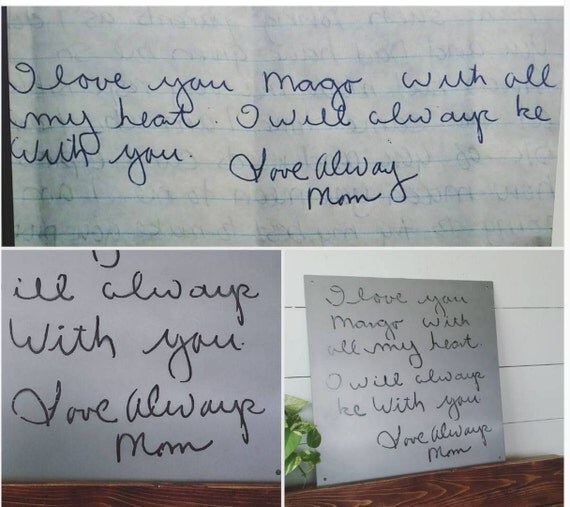 I love you Mago with all
my heat. I will always be
with you.
Love Alway
Mom
ill always
With you.
Love Always
Mom
I love you
Margo with
all my heat.
I will always
be With you
Love Always
Mom